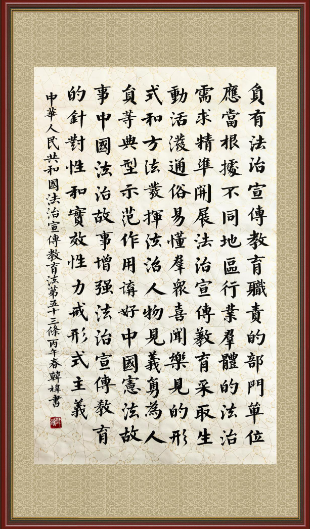 負有法治宣傳教育職責的部門單位
應當根據不同地區行業羣體的法治
需求精準開展法治宣傳教育采取生
動活潑通俗易懂羣衆喜聞樂見的形
式和方法發揮法治人物見義勇為人
員等典型示范作用講好中國憲法故
事中國法治故事增强法治宣傳教育
的針對性和實效性力戒形式主義
中華人民共和國法治宣傳教育法第五十三條丙午春韓書